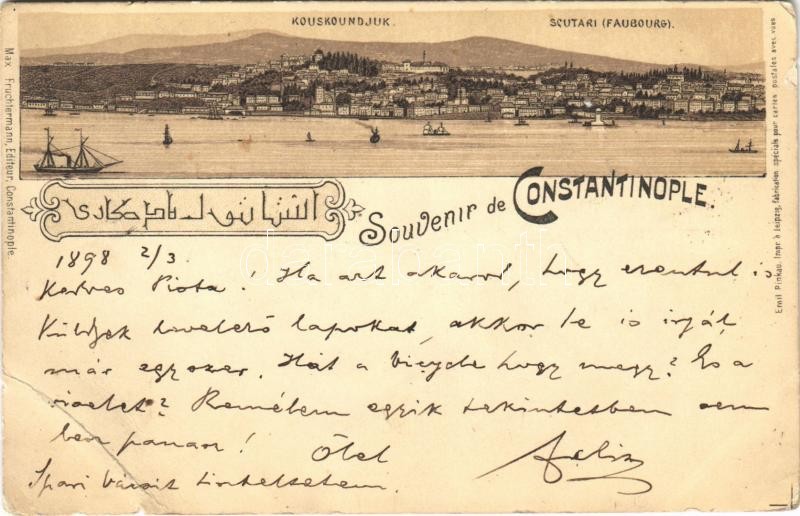 KOUSKOUNDJUK.
SCUTARI (FAUBOURG).
Max Fruchtermann, Editeur, Constantinople.
Emil Pinkau, Impr. à Leipzig, fabrication spéciale pour cartes postales avec vues
Souvenir de CONSTANTINOPLE.
1898 2/3.
Kedves Pista! Ha azt akarod, hogy ezentul is
Küldjek levelező lapokat, akkor te is irjál
már egyszer. Hát a bicycle hogy megy? És a
Remélem egyik tekintetben sem
van panasz! Ölel
Felix